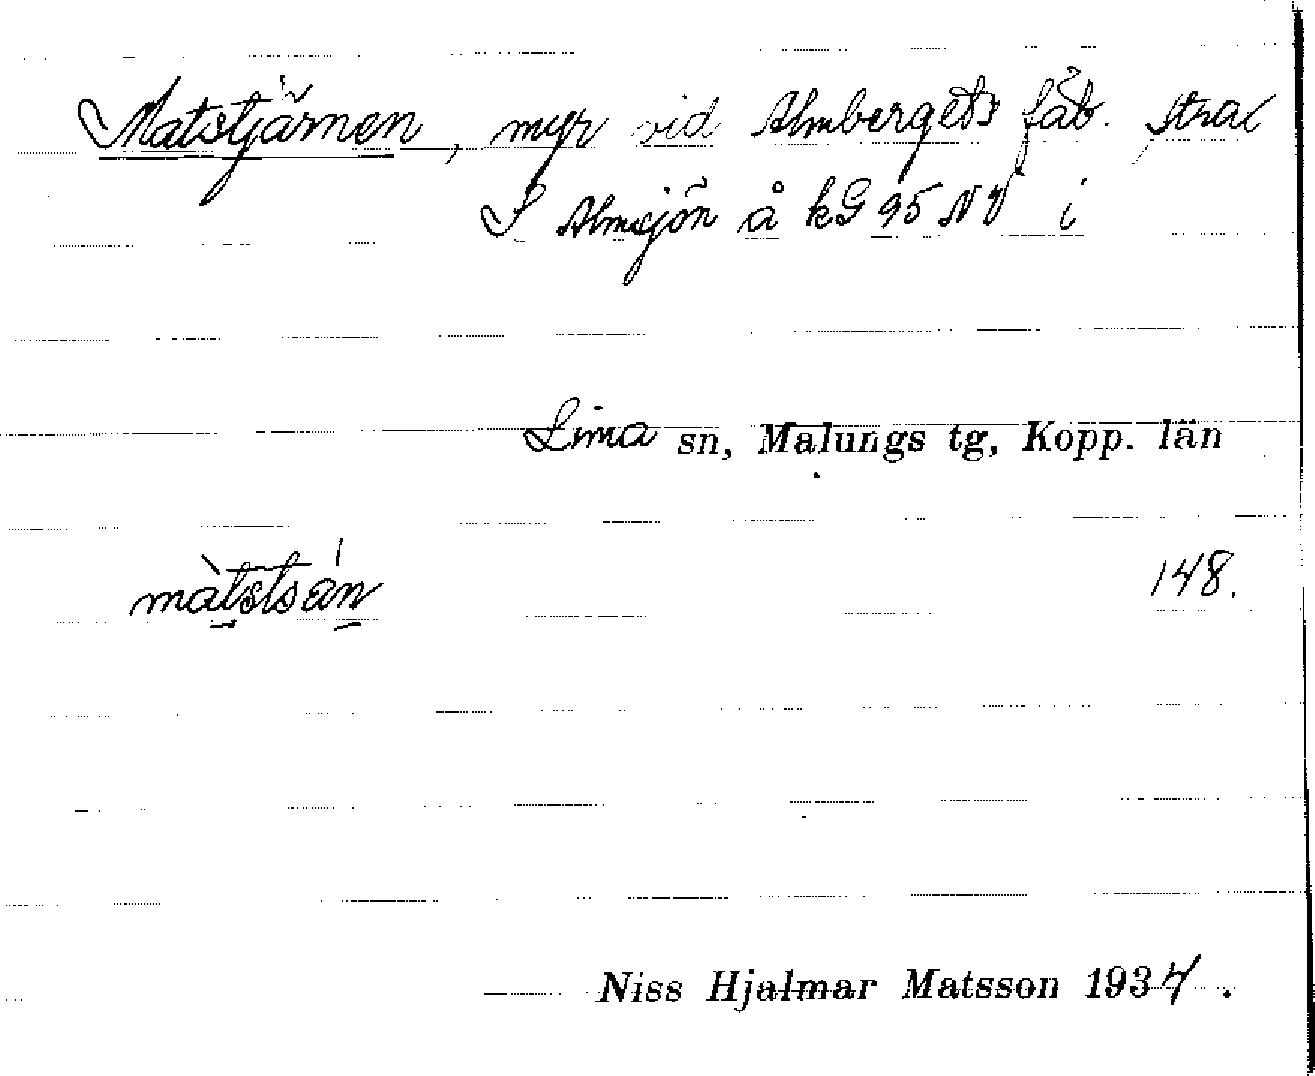 Matstjärnen, myr vid Almbergets fäb. strax
S Almsjön å kG 95 NV i
Lima sn, Malungs tg, Kopp. län
màtstsán 148.
Niss Hjalmar Matsson 1934.